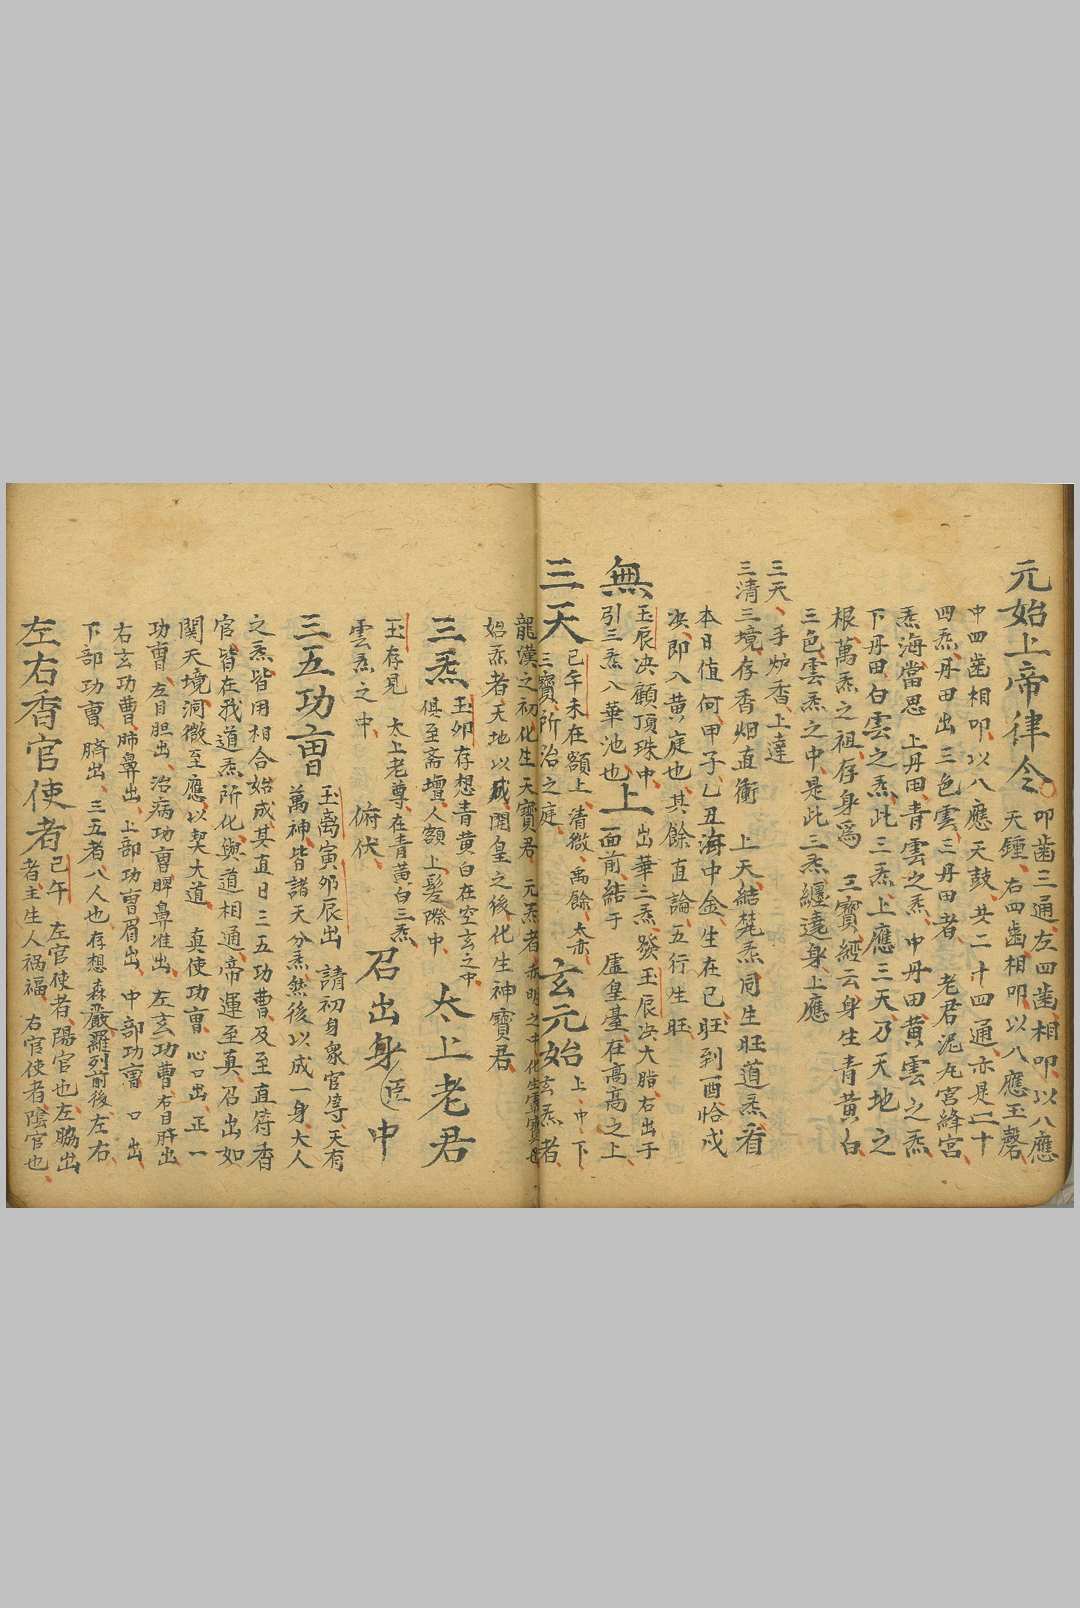 元始上帝律令
叩齒三通、左四齒相叩、以八應
天鍾、右四齒相叩、以八應玉磬、
中四齒相叩、以八應天鼓、共二十四通、亦是二十
四炁、丹田出三色雲、三丹田者、老君泥丸宮絳宮、
炁海、當思　上丹田、青雲之炁、中丹田、黃雲之炁
下丹田、白雲之炁、此三炁上應三天乃天地之
根、萬炁之祖、存身為　三寶經云、身生青黃白
三色、雲炁之中、是此三炁纏遶身、上應
三天、手炉香、上達
三清三境、存香烟直衝　上天、結梵炁同生旺道炁看
本日值何甲子、乙丑海中金生在巳、旺到酉恰成
決、即入黃庭也、其餘直論、五行生旺、
無
玉辰決顧頂珠中、出華二炁、發玉辰決大指右出于
引三炁八華池也、
上
面前、結于　虛皇臺、在高高之上、
三天
巳午未在額上、清微、禹餘、太赤、
三寶所治之庭、
玄元始
上、中、下
龍漢之初、化生天寶君、元炁者、赤明之中化生靈寶君
始炁者天地以成、開皇之後、化生神寶君、玄炁者
三炁
玉卯存想青黃白在空玄之中、
俱至斋壇人額上髮際中
太上老君
玉存見　太上老尊、在青黃白三炁
雲炁之中、
俯伏
召出身臣中
三五功曺
玉离寅卯辰出　請初身衆官等、天有
萬神、皆諸天分炁、然後以成一身、大人
之炁皆用相合始成、其直日三五功曹、及至直符香
官、皆在我道炁所化、與道相通、帝運至真、召出如
関天境、洞微至應、以契大道、直使功曺、心口出、正一
功曺、左目胆出、治病功曺脾鼻准出、左玄功曹右目肝出
右玄功曹、肺鼻出、上部功曺眉出、中部功曺、口出
下部功曺、臍出、三五者八人也存想森嚴羅列前後左右
左右香官使者
巳午　左官使者、陽官也、左脇出
者主生人禍福、右官使者陰官也、